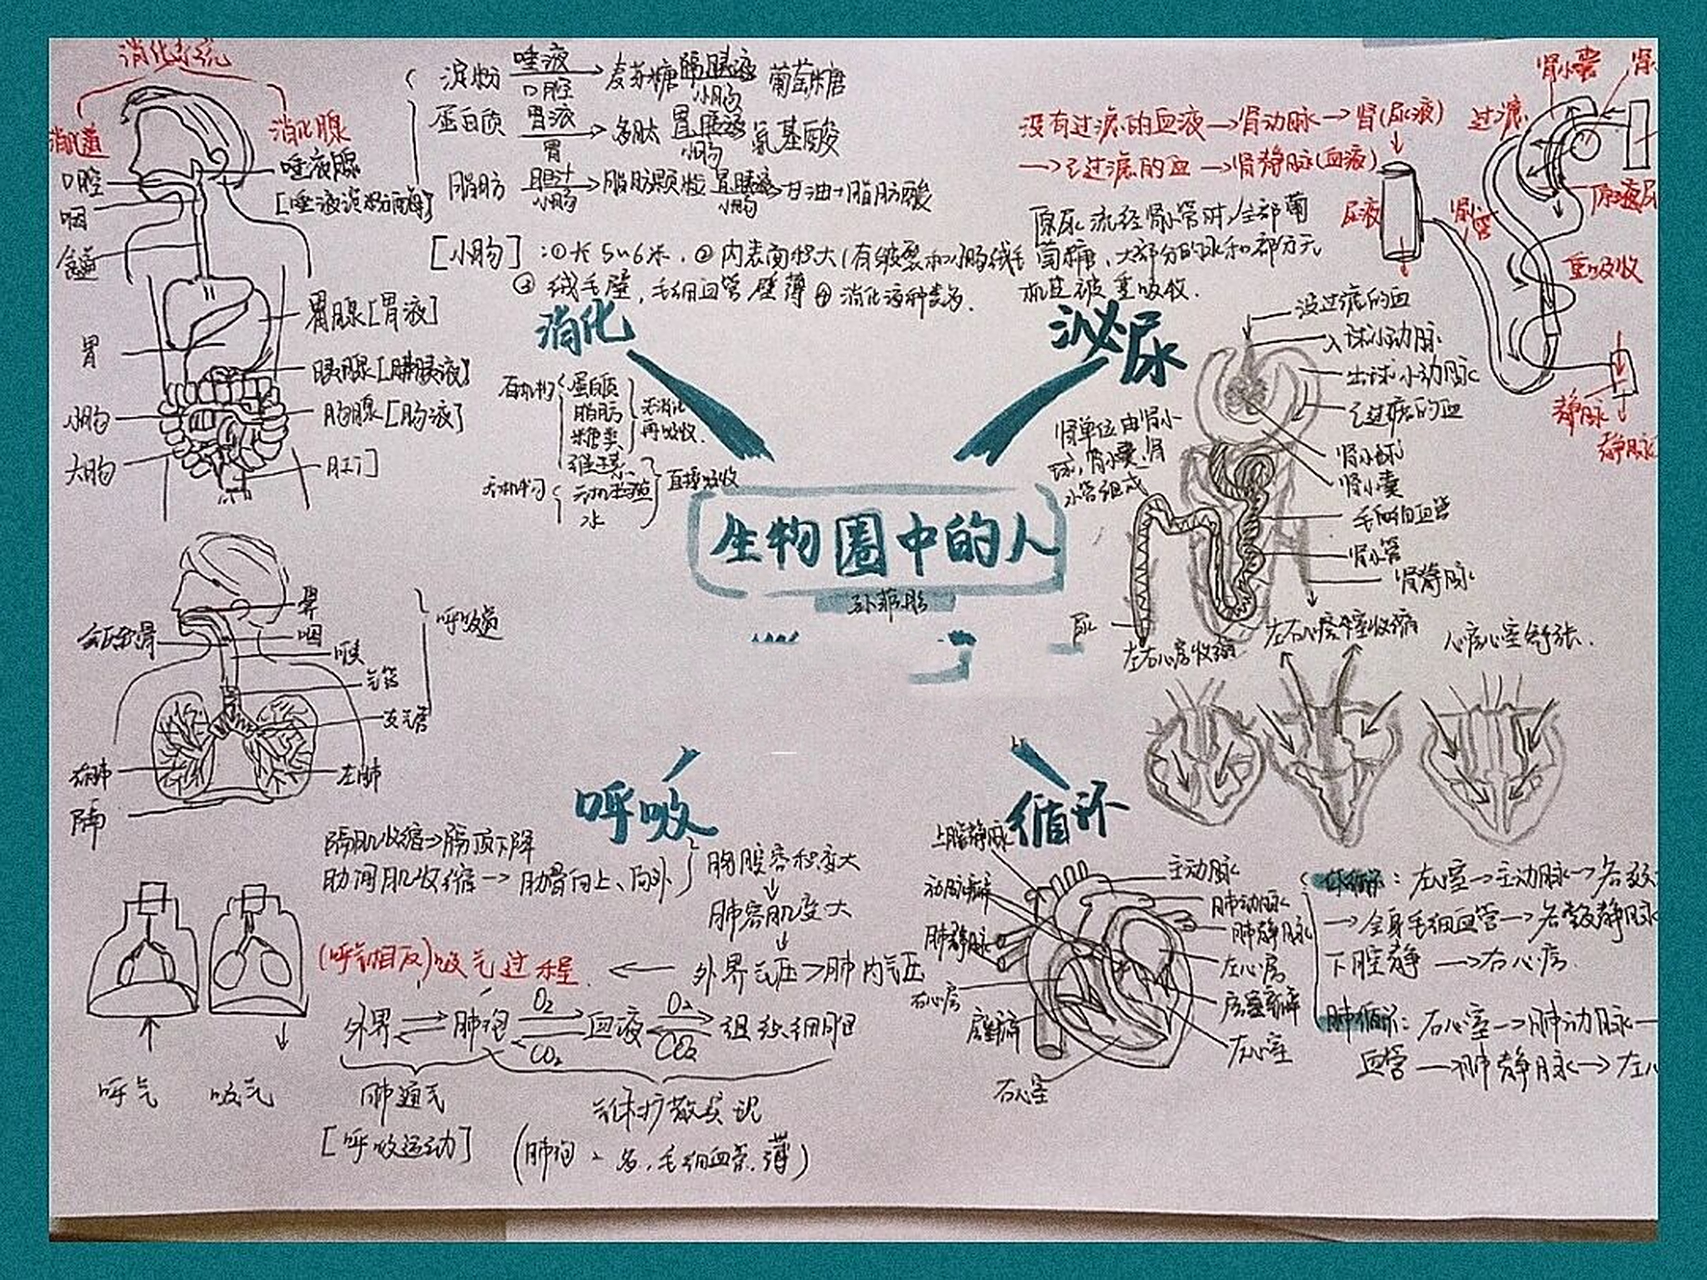 消化系统
消化道
消化腺
口腔
咽
食道
唾液腺
[唾液淀粉酶]
胃
胃腺[胃液]
胰腺[胰液]
小肠
肠腺[肠液]
大肠
肛门
淀粉 唾液 口腔 麦芽糖 肠胰液 小肠 葡萄糖
蛋白质 胃液 胃 多肽 胃胰液 小肠 氨基酸
脂肪 胆汁 小肠 脂肪颗粒 胰液 小肠 甘油+脂肪酸
[小肠]:①长5~6米,②内表面积大(有皱襞和小肠绒毛
③绒毛壁,毛细血管壁薄④消化液种类多.
消化
有机物
蛋白质
脂肪
糖类
维生素
先消化
再吸收.
无机物
无机盐
水
直接吸收
没有过滤的血液→肾动脉→肾(尿液)
→已过滤的血→肾静脉(血液)
原尿流经肾小管时,全部葡
萄糖,大部分的水和部分无
机盐被重吸收.
泌尿
肾小囊
过滤
尿液
肾小管
重吸收
静脉
静脉
没过滤的血
入球小动脉
出球小动脉
已过滤的血
肾小球
肾小囊
毛细血管
肾小管
肾静脉
尿
肾单位由肾小
球,肾小囊,肾
小管组成
生物圈中的人
鼻
咽
喉
气管
支气管
呼吸道
右肺
左肺
膈
呼吸
膈肌收缩→膈顶下降
肋间肌收缩→肋骨向上、向外
胸腔容积变大
肺容肌变大
外界气压>肺内气压
(呼气相反)吸气过程
外界 肺泡 O₂ CO₂ 血液 O₂ CO₂ 组织细胞
肺通气
[呼吸运动]
气体扩散实现
(肺泡、多,毛细血管,薄)
呼气
吸气
左右心房收缩
左右心室收缩
心房心室舒张.
循环
上腔静脉
动脉瓣
肺静脉
右心房
房室瓣
右心室
主动脉
肺动脉
肺静脉
左心房
房室瓣
左心室
体循环:左心室→主动脉→各级
→全身毛细血管→各级静脉
下腔静→右心房.
肺循环:右心室→肺动脉—
血管→肺静脉→左心